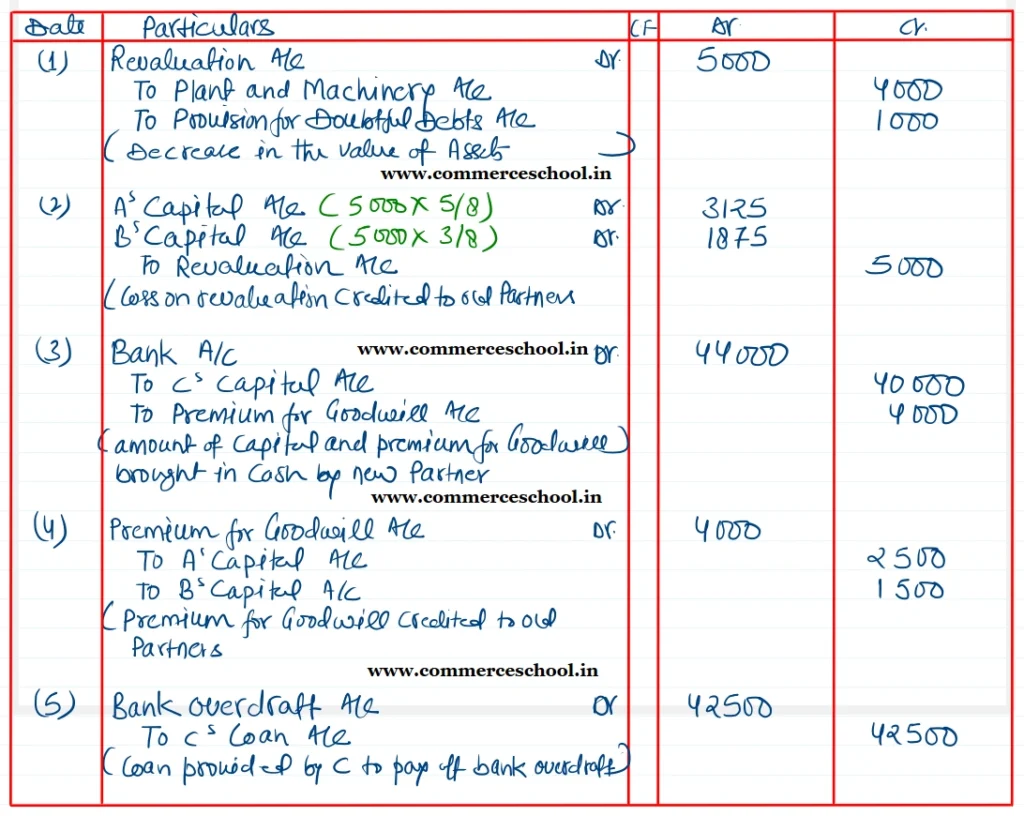 Date Particulars CF Dr. Cr.
(1) Revaluation A/c Dr. 5000
To Plant and Machinery A/c 4000
To Provision for Doubtful Debts A/c 1000
(Decrease in the value of Assets)
www.commerceschool.in
(2) A's Capital A/c (5000 X 5/8) Dr. 3125
B's Capital A/c (5000 X 3/8) Dr. 1875
To Revaluation A/c 5000
(Loss on revaluation Credited to old Partners
(3) Bank A/C www.commerceschool.in Dr. 44000
To C's Capital A/c 40000
To Premium for Goodwill A/c 4000
(amount of Capital and premium for Goodwill)
brought in Cash by new Partner
www.commerceschool.in
(4) Premium for Goodwill A/c Dr. 4000
To A's Capital A/c 2500
To B's Capital A/c 1500
(Premium for Goodwill Credited to old
Partners
www.commerceschool.in
(5) Bank overdraft A/c Dr 42500
To C's Loan A/c 42500
(Loan provided by C to pay off bank overdraft)